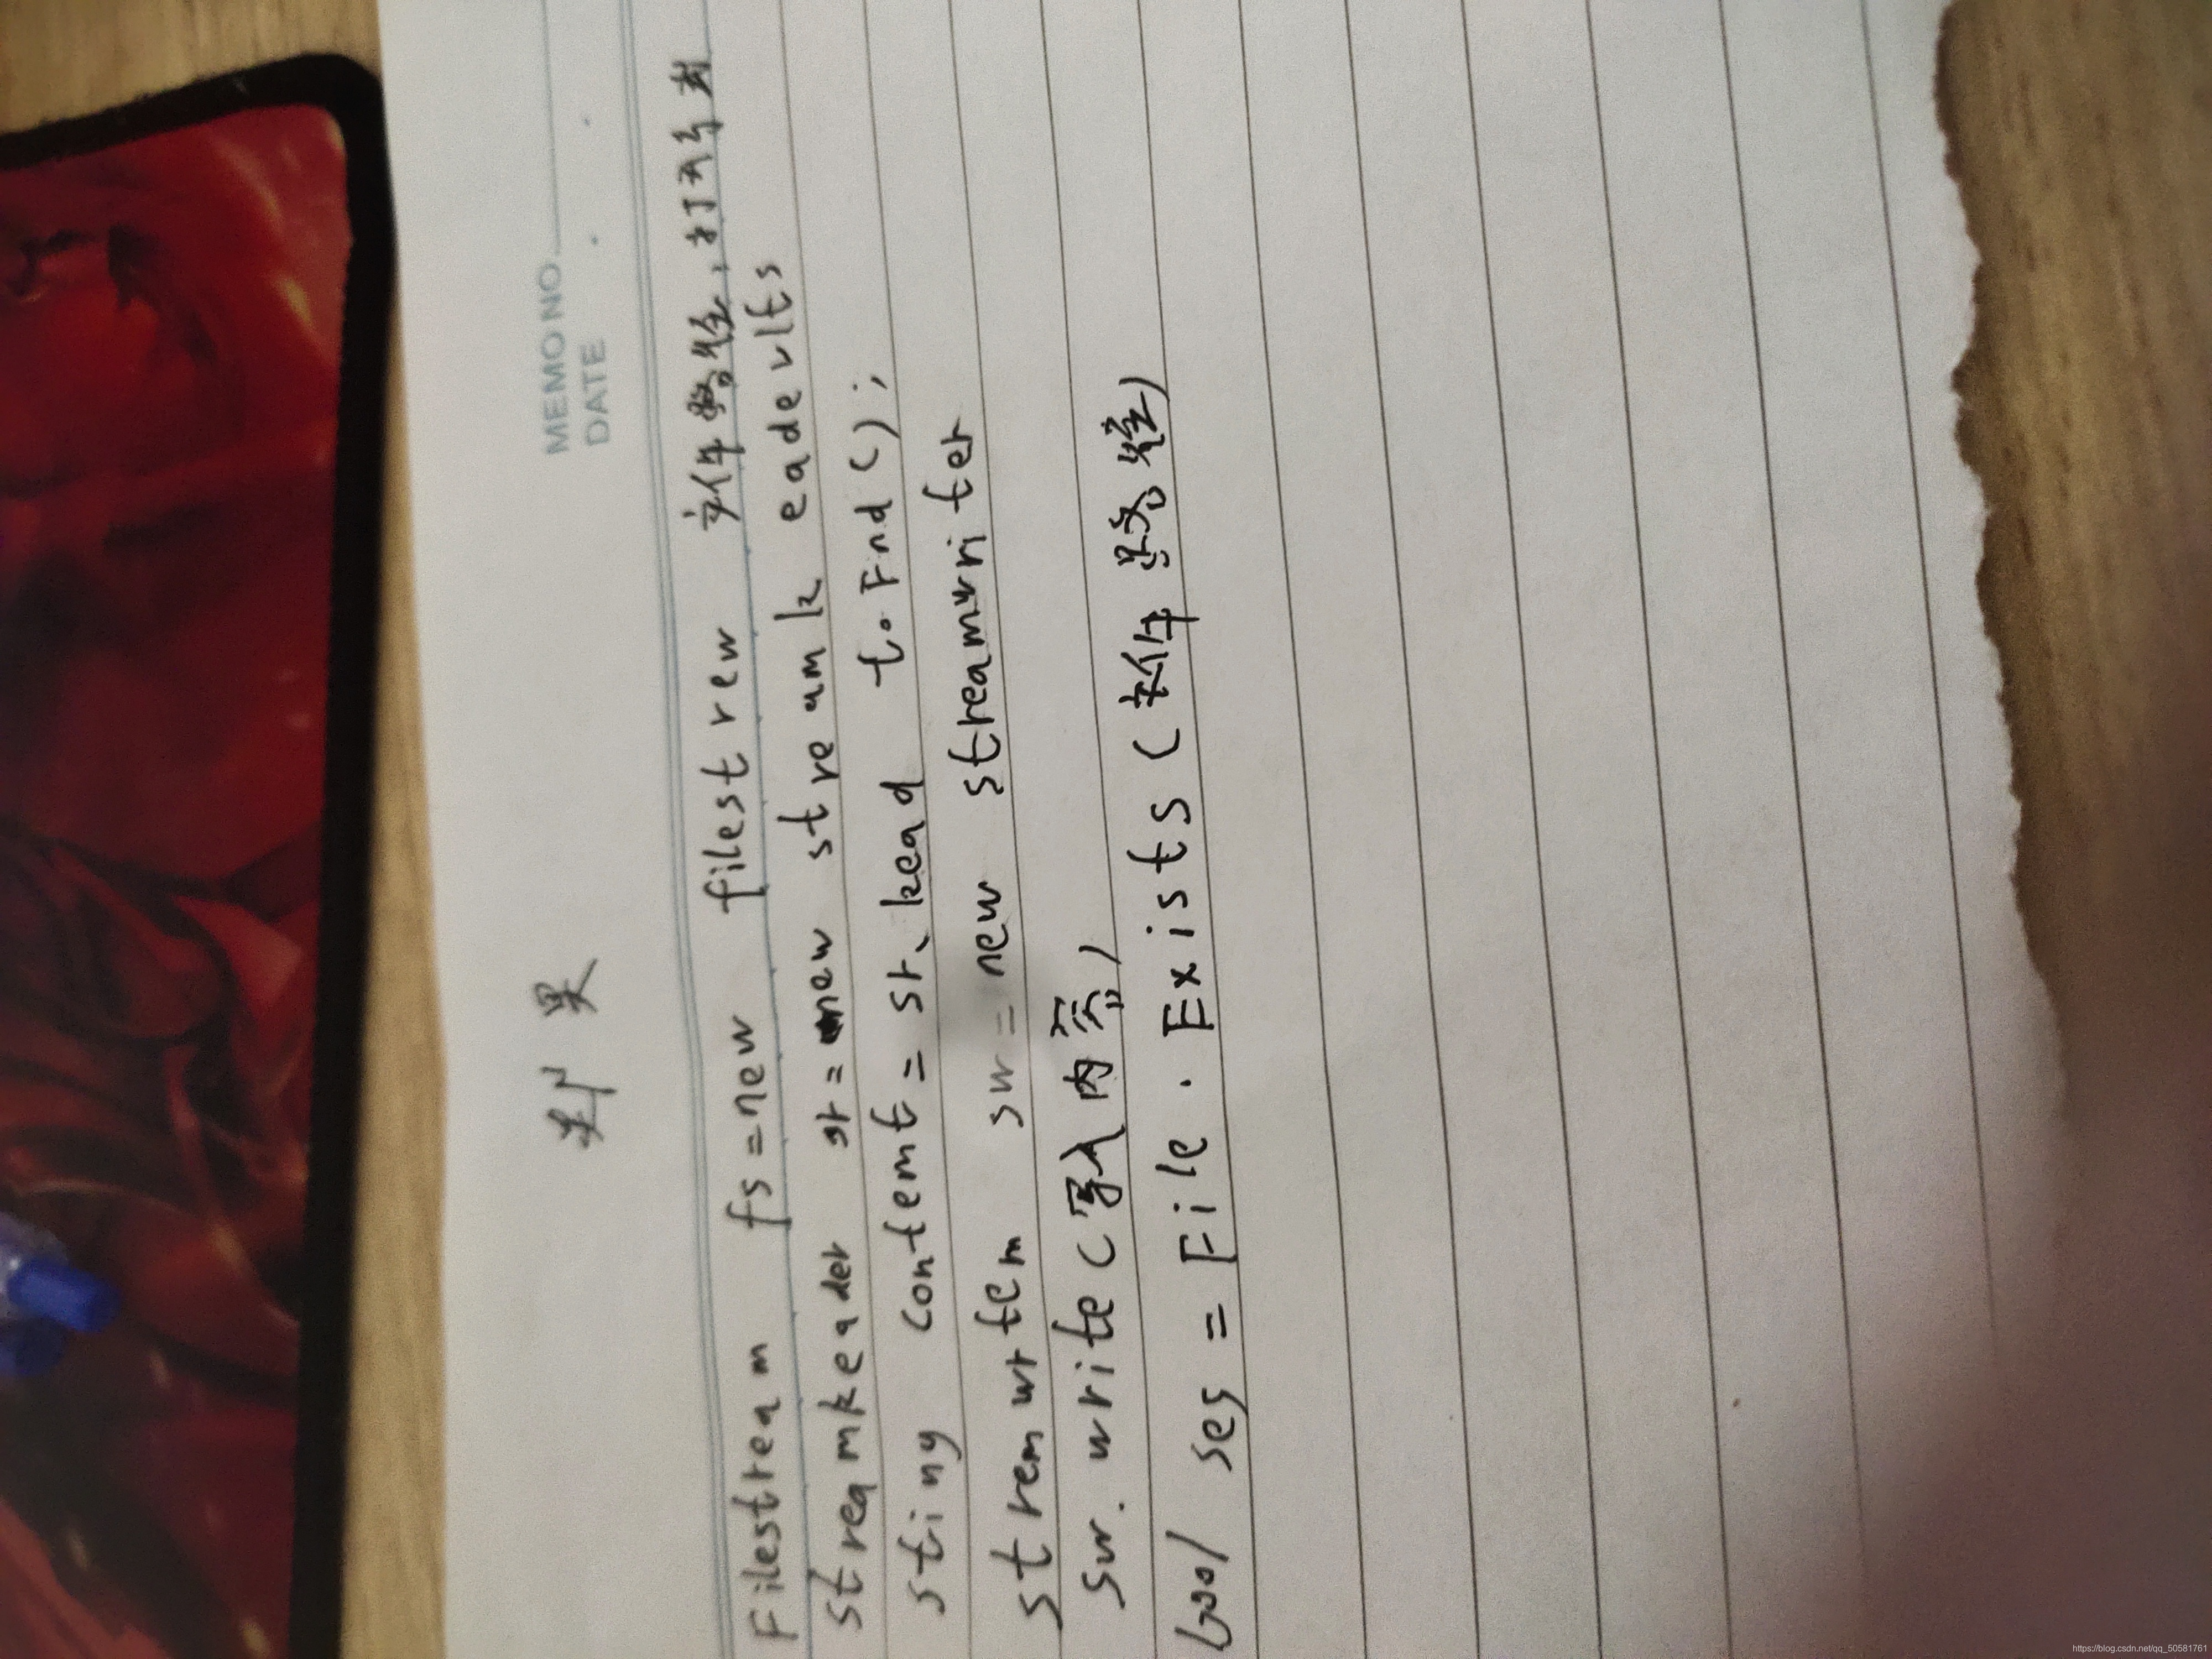 MEMO NO.
DATE
Filestream fs=new filestrew 文件路径,打开方式
streamkeader sr=new streamk eadevlts
stiing contemt=sr、kead to Fnd();
stremwrtem sw=new streamwriter
sw.write(写入内容)
bool ses=File.Exists(文件路径)
https://blog.csdn.net/qq_50581761